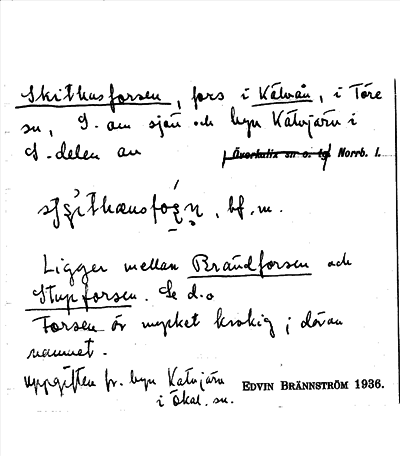 Skithusforsen, fors i Kälvån, i Töre
sn, S. om sjön och byn Kälvjärv i
S. delen av Överkalix sn o. tg Norrb. l.
bf. m.
Ligger mellan Brändforsen och
Stupforsen. Se d. o
Forsen är mycket krokig; därav
namnet.
Uppgiften fr. byn Kälvjärv
i Ökal. sn. EDVIN BRÄNNSTRÖM 1936.